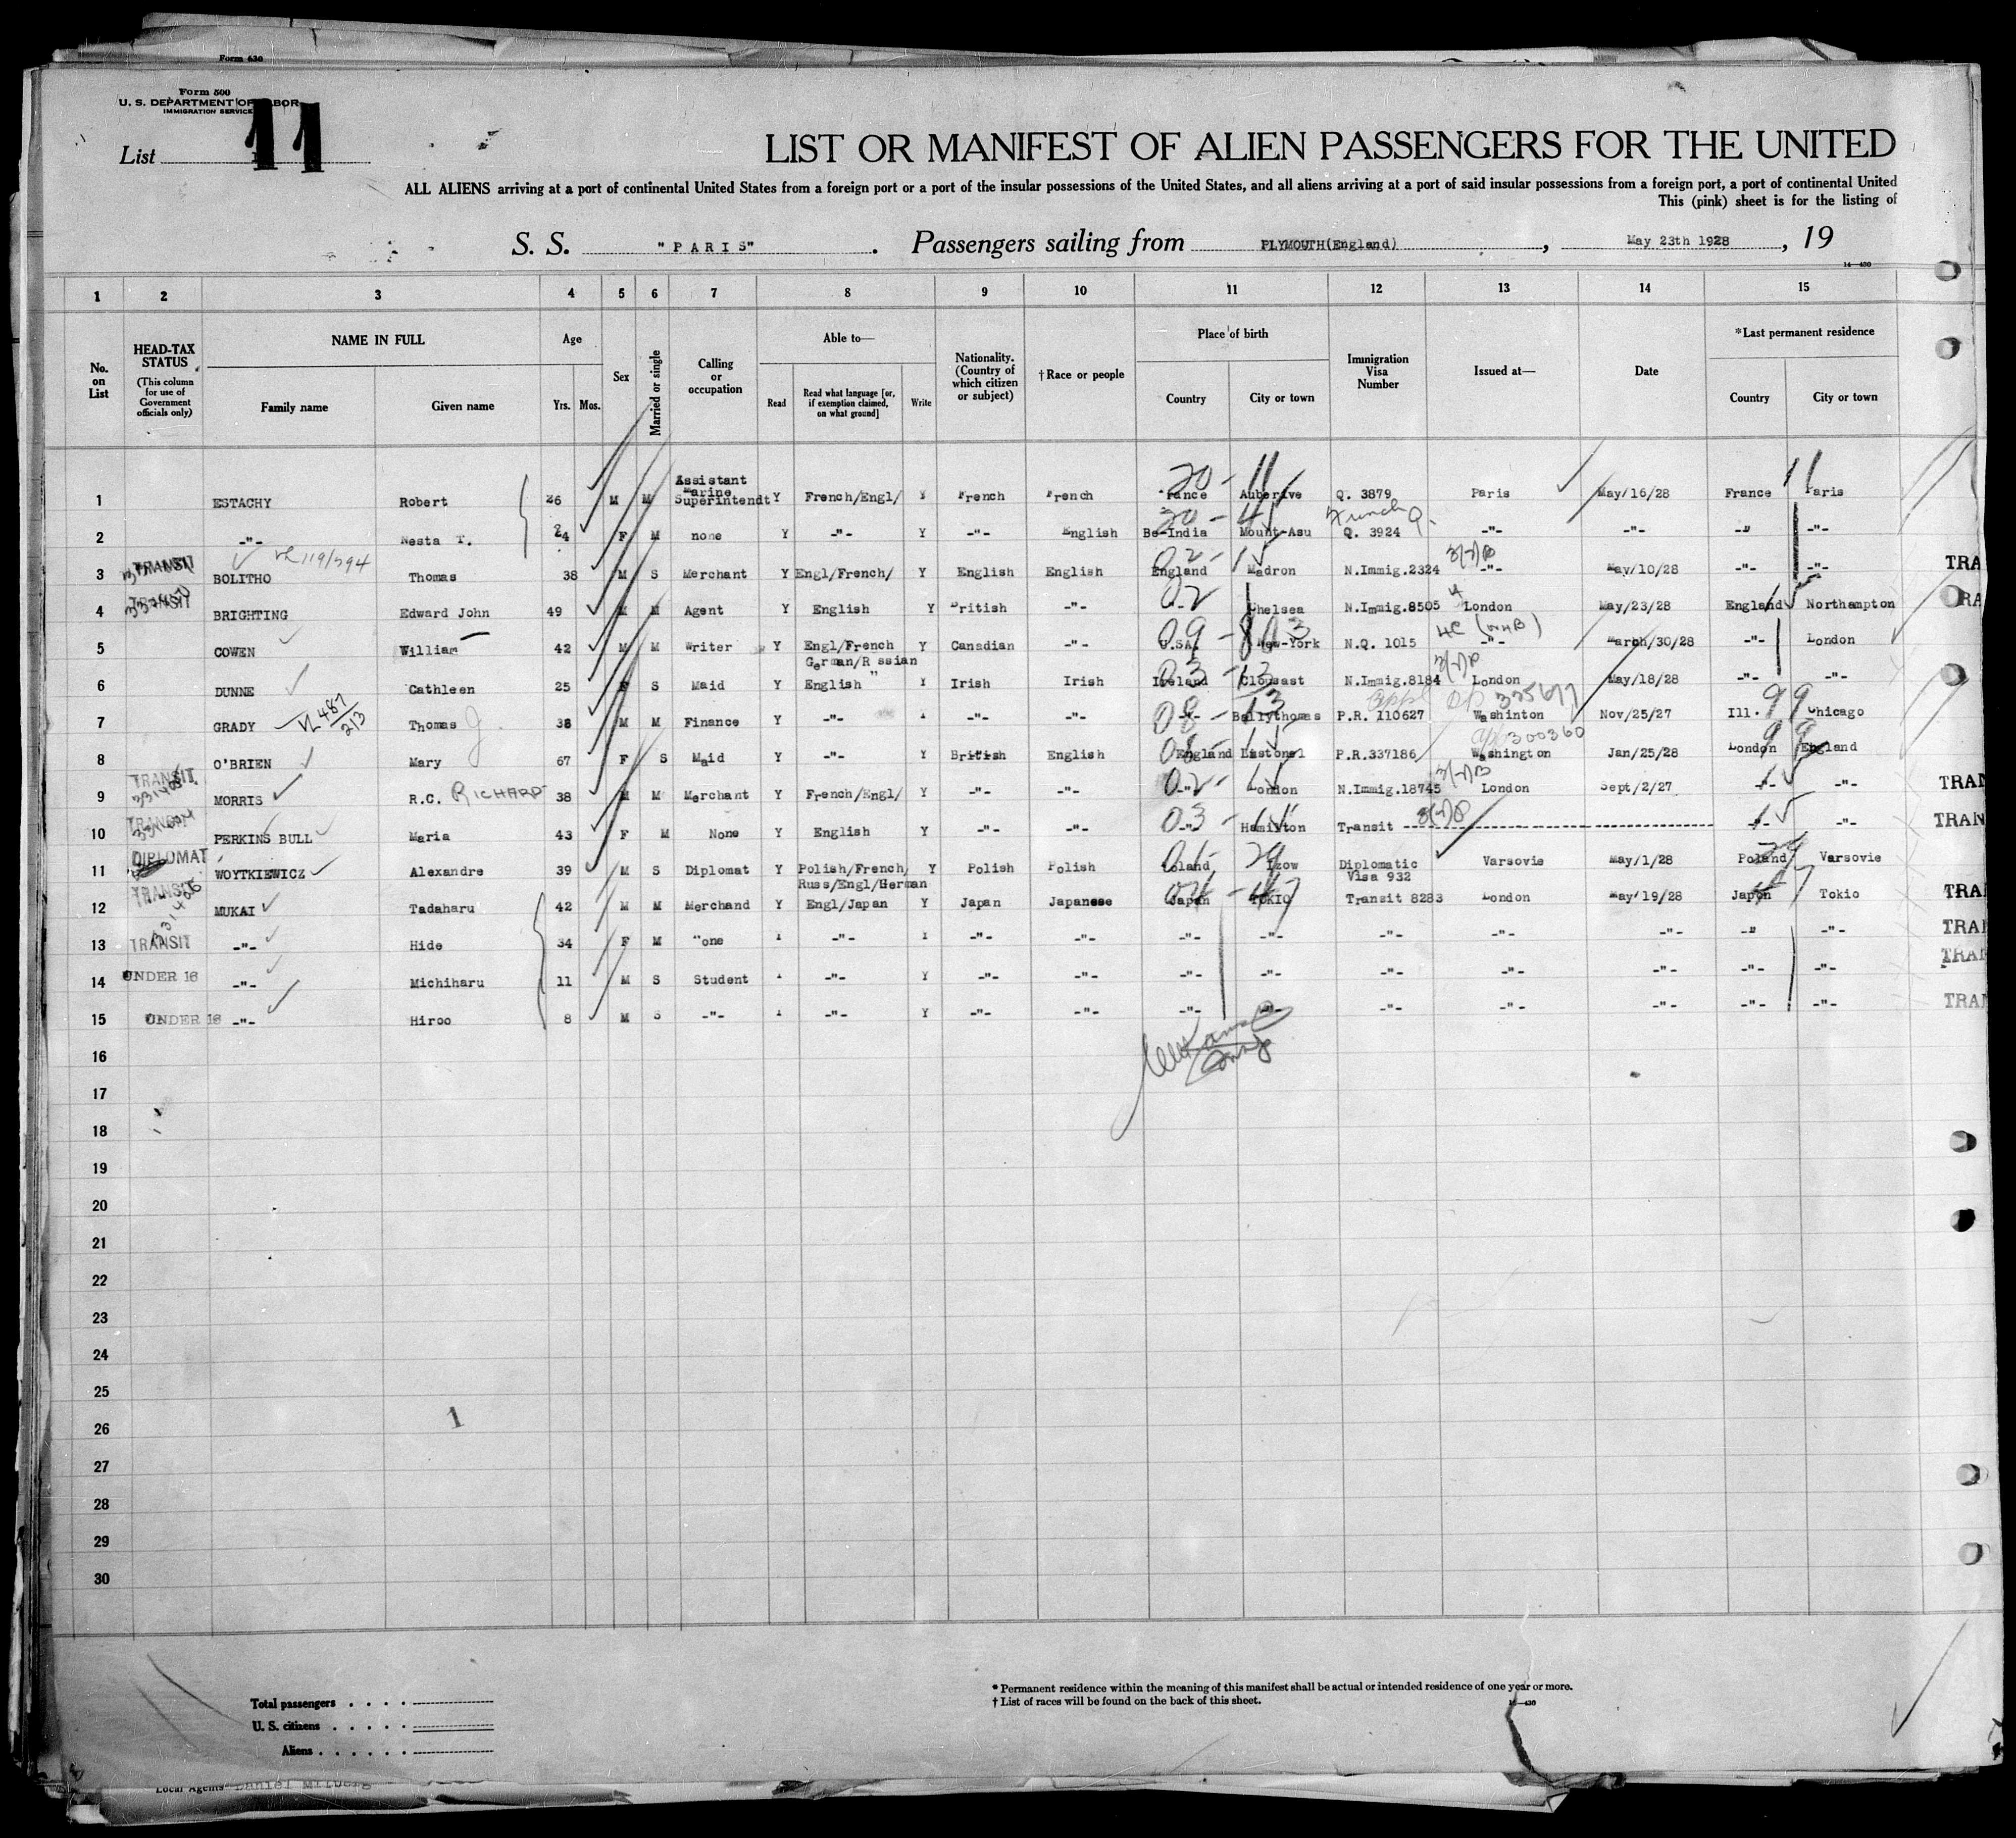 Form 630
Form 500
U. S. DEPARTMENT OF LABOR
IMMIGRATION SERVICE
List 11
LIST OR MANIFEST OF ALIEN PASSENGERS FOR THE UNITED
ALL ALIENS arriving at a port of continental United States from a foreign port or a port of the insular possessions of the United States, and all aliens arriving at a port of said insular possessions from a foreign port, a port of continental United
This (pink) sheet is for the listing of
S. S. "PARIS". Passengers sailing from PLYMOUTH(England), May 23th 1928, 19
14—430
1 2 3 4 5 6 7 8 9 10 11 12 13 14 15
No. on List
HEAD-TAX STATUS (This column for use of Government officials only)
NAME IN FULL
Family name
Given name
Age
Yrs. Mos.
Sex
Married or single
Calling or occupation
Able to—
Read
Read what language [or, if exemption claimed, on what ground]
Write
Nationality. (Country of which citizen or subject)
†Race or people
Place of birth
Country
City or town
Immigration Visa Number
Issued at—
Date
*Last permanent residence
Country
City or town
1 ESTACHY Robert 26 M M Assistant Marine Superintendt Y French/Engl/ Y French French France Auberive Q. 3879 Paris May/16/28 France Paris
2 -"- Nesta T. 24 F M none Y -"- Y -"- English Be-India Mount-Asu Q. 3924 -"- -"- -"- -"-
3 TRANSIT BOLITHO VL 119/394 Thomas 38 M S Merchant Y Engl/French/ Y English English England Madron N.Immig.2324 -"- May/10/28 -"- -"- TRA
4 TRANSIT BRIGHTING Edward John 49 M M Agent Y English Y British -"- -"- Chelsea N.Immig.8505 London May/23/28 England Northampton RA
5 COWEN William 42 M M Writer Y Engl/French German/R ssian Y Canadian -"- U.SA. New-York N.Q. 1015 -"- March/30/28 -"- London
6 DUNNE Cathleen 25 F S Maid Y English " Y Irish Irish Ireland Clousast N.Immig.8184 London May/18/28 -"- -"-
7 GRADY VL 487/213 Thomas J 38 M M Finance Y -"- -"- -"- -"- Ballythomas P.R. 110627 Washinton Nov/25/27 Ill. Chicago
8 O'BRIEN Mary 67 F S Maid Y -"- Y British English England Eastonel P.R.337186 Washington Jan/25/28 London England
9 TRANSIT MORRIS R.C. RICHARD 38 M M Merchant Y French/Engl/ Y -"- -"- -"- London N.Immig.18745 London Sept/2/27 -"- -"- TRAN
10 TRANSIT PERKINS BULL Maria 43 F M None Y English Y -"- -"- -"- Hamilton Transit -"- -"- TRAN
11 DIPLOMAT WOYTKIEWICZ Alexandre 39 M S Diplomat Y Polish/French/ Russ/Engl/German Y Polish Polish Poland Diplomatic Visa 932 Varsovie May/1/28 Poland Varsovie
12 TRANSIT MUKAI Tadaharu 42 M M Merchand Y Engl/Japan Y Japan Japanese Japan TOKIO Transit 8283 London May/19/28 Japon Tokio TRA
13 TRANSIT -"- Hide 34 F M None -"- -"- -"- -"- -"- -"- -"- -"- -"- -"- TRAN
14 UNDER 16 -"- Michiharu 11 M S Student -"- Y -"- -"- -"- -"- -"- -"- -"- -"- -"- TRAN
15 UNDER 16 -"- Hiroo 8 M S -"- -"- Y -"- -"- -"- -"- -"- -"- -"- -"- -"- TRAN
16
17
18
19
20
21
22
23
24
25
26
27
28
29
30
1
Total passengers
U. S. citizens
Aliens
* Permanent residence within the meaning of this manifest shall be actual or intended residence of one year or more.
† List of races will be found on the back of this sheet.
14—430
Local Agents